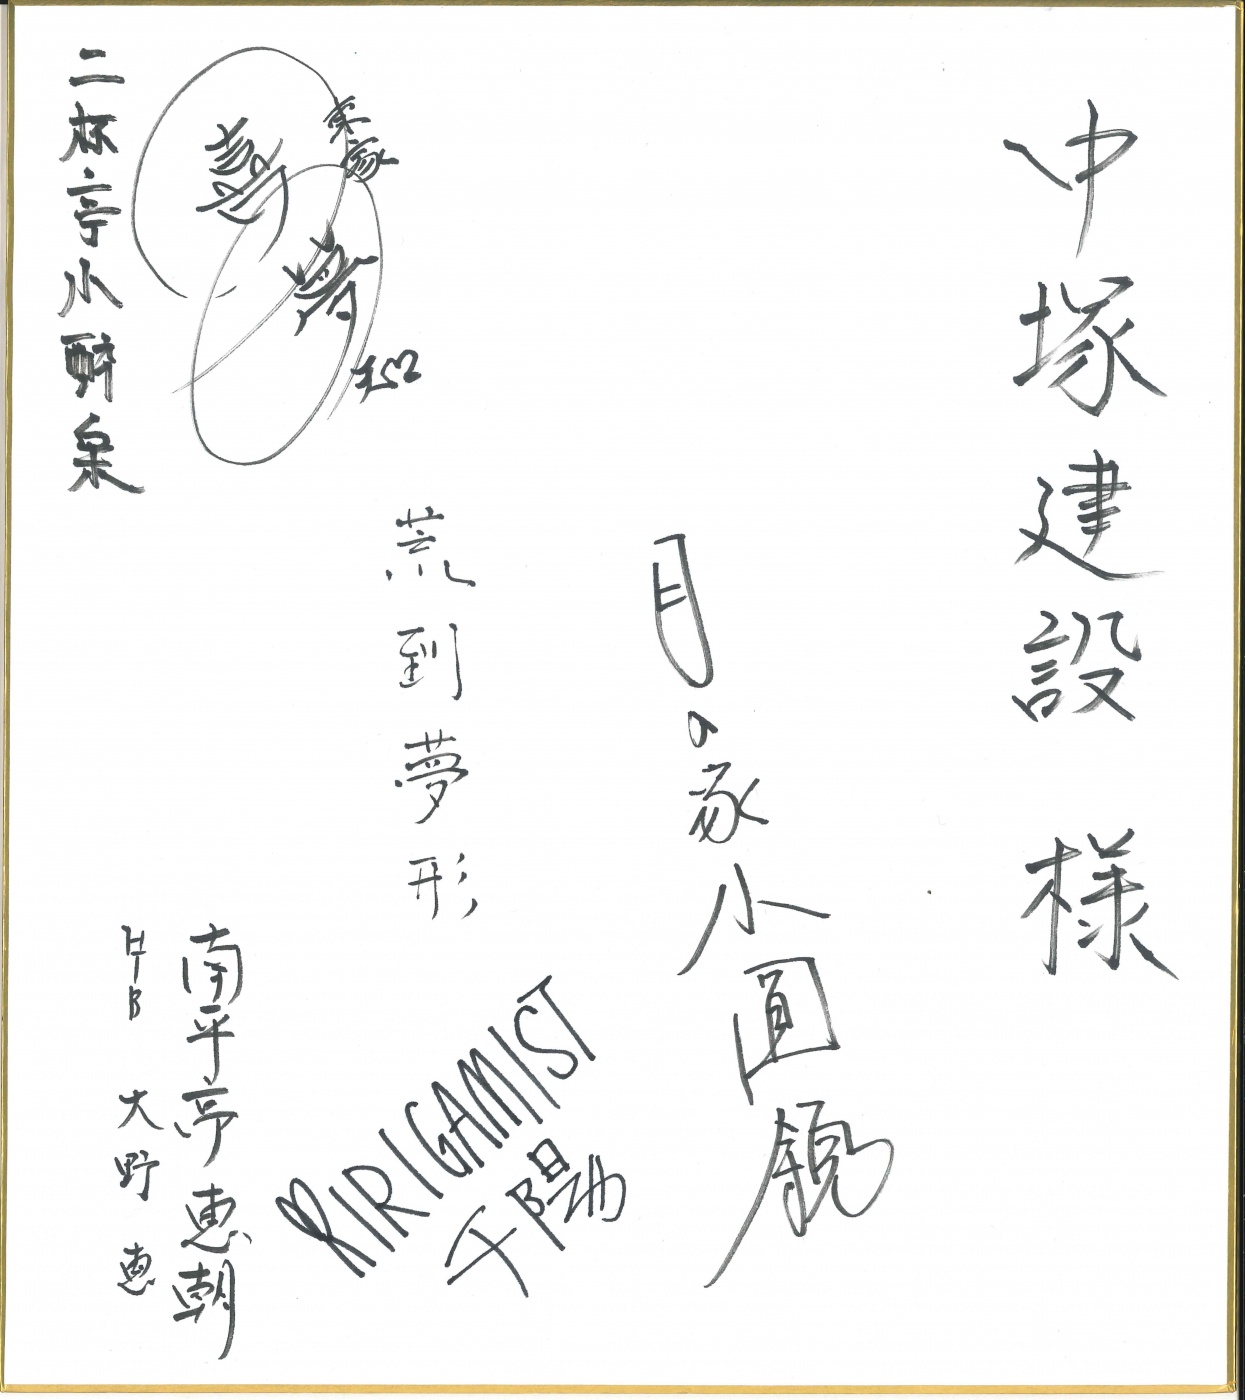 中塚建設 様
月の家小圓鏡
荒到夢形
KIRIGAMIST
千陽
東家
夢
南平亭恵朝
大野 恵
二杯亭小酔泉